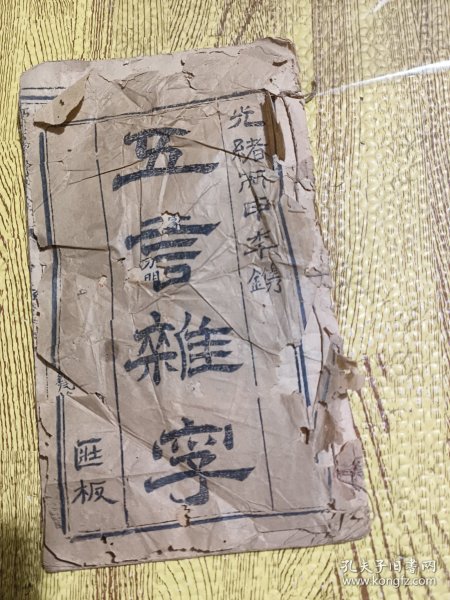 光緒丙申年鐫
五言雜字
板
孔夫子旧书网
www.kongfz.com